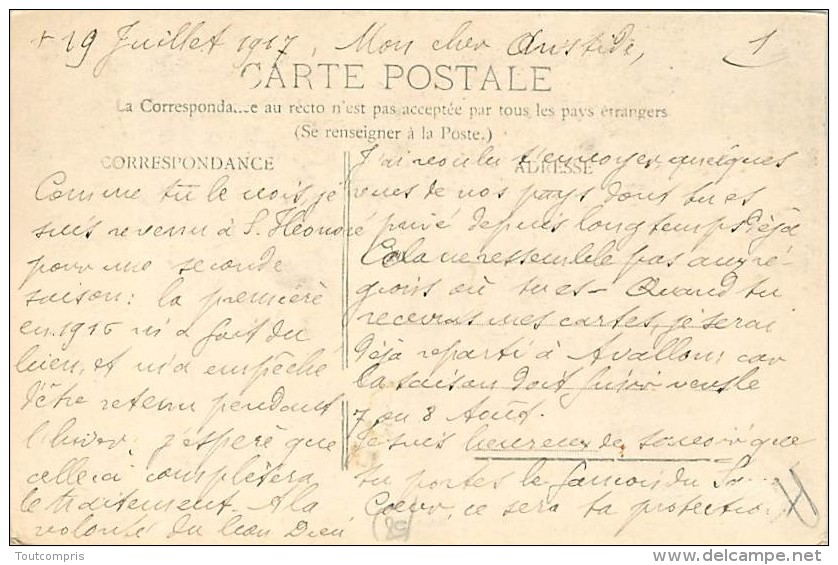 + 19 Juillet 1917, Mon cher Aristide,
1
CARTE POSTALE
La Correspondance au recto n'est pas acceptée par tous les pays étrangers
(Se renseigner à la Poste.)
CORRESPONDANCE
Comme tu le vois je
suis revenu à S. Honoré
pour une seconde
saison: la première
en 1916 m'a fait du
bien, et m'a empêché
d'être retenu pendant
l'hiver; j'espère que
celle ci complètera
le traitement. A la
volonté du bon Dieu
ADRESSE
J'ai voulu t'envoyer quelques
vues de nos pays dont tu es
privé depuis longtemps déjà
Cela ne ressemble pas aux ré-
gions où tu es - Quand tu
recevras mes cartes, je serai
déjà reparti à Avallon; car
la saison doit finir vers le
7 ou 8 Août.
Je suis heureux de savoir que
tu portes le fanion du Sa...
Cœur, ce sera ta protection
58
Toutcompris
www.delcampe.net